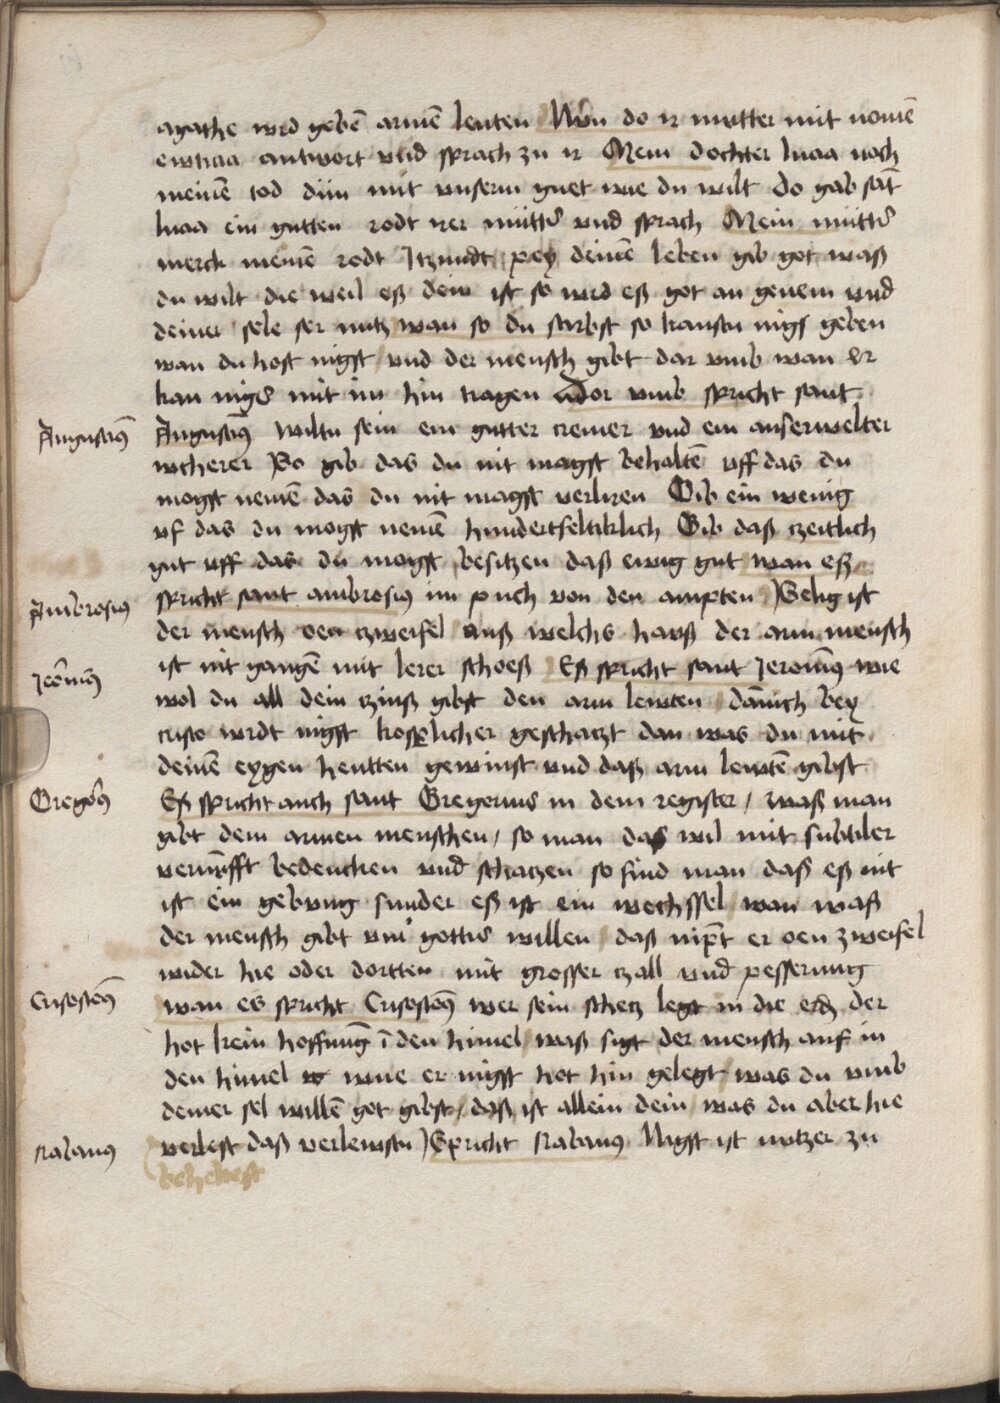 agathe wird gebē armē leuten Wan do ir mutter mit nomē
ewticia antwort vnd sprach zu ir Mein dochter lucia noch
meinē tod duͤn mit vnserm guet wie du wilt do gab sāt
lucia ein gutten rodt irer mütter vnd sprach Mein mütter
merck meinē rodt Itzundt pey deinē leben gib got waß
du wilt die weil eß dein ist so wird eß got an genem vnd
deiner sele ser nutz wan so du stirbst so kanstu nigs geben
wan du host nigst vnd der mensch gibt dar vmb wan er
kan nigs mit im hin tragen dor vmb spricht sant
Augustinꝰ
Augustinꝰ wiltu sein ein gutter cremer vnd ein außerwelter
wcherer So gib das du nit magst behaltē vff das du
mogst nemē das du nit magst verliren Gib ein wenig
vf das du mogst nemē hundertfeltiklich Gib daß czeitlich
gut vff das du mogst besitzen daß ewig gut wan eß
Ambrosius
spricht sant ambrosius im puch von den ampten Selig ist
der mensch oen czweifel auß welchs hawß der arm mensch
ist nit gangē mit lerer schoeß Eß spricht sant Jeronimꝰ wie
Jeronimꝰ
wol du all dein czinß gibst den arm lewten dānich bey
cristo wirdt nigst kostlicher geschaczt dan was du mit
deinē eygen hentten gewinst vnd daß arm lewtē gibst
Gregoriꝰ
Eß spricht auch sant Gregorius in dem register / waß man
gibt dem armen menschen / so man daß wil mit subtiler
vernūfft bedencken vnd schaczen so find man daß eß nit
ist ein gebung sunder eß ist ein wechssel wan waß
der mensch gibt vm gottis willen daß nīpt er oen zweifel
wider hie oder dortten mit grosser czall vnd pesserung
Crisostomꝰ
wan es spricht Crisostomꝰ wer sein schetz legt in die erd der
hot kein hoffnung ī den himel waß sigt der mensch auf in
den himel wue er nigst hot hin gelegt was du vmb
deiner sel willē got gibst / daß ist allein dein was du aber hie
Rabanus
verlest daß verlewstu Spricht Rabanus Nigst ist nutzer zu
behelest